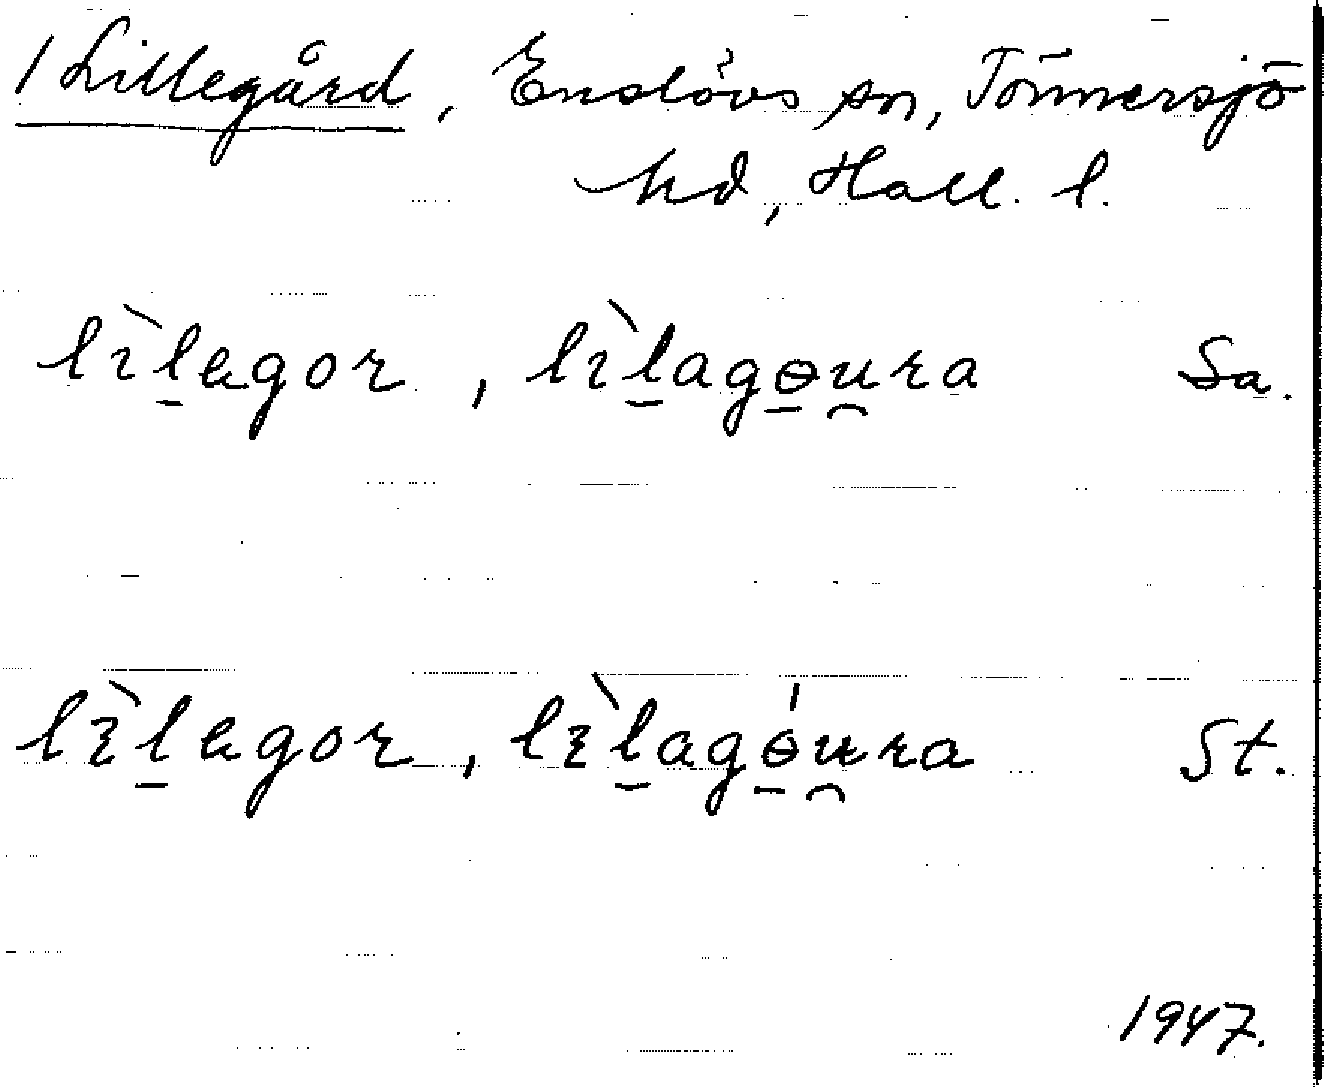 1 Lillegård, Enslövs sn, Tönnersjö
hd, Hall. l.
lìlegor, lìlagɵura Sa.
lìlegor, lìlagɵ́ura St.
1947.